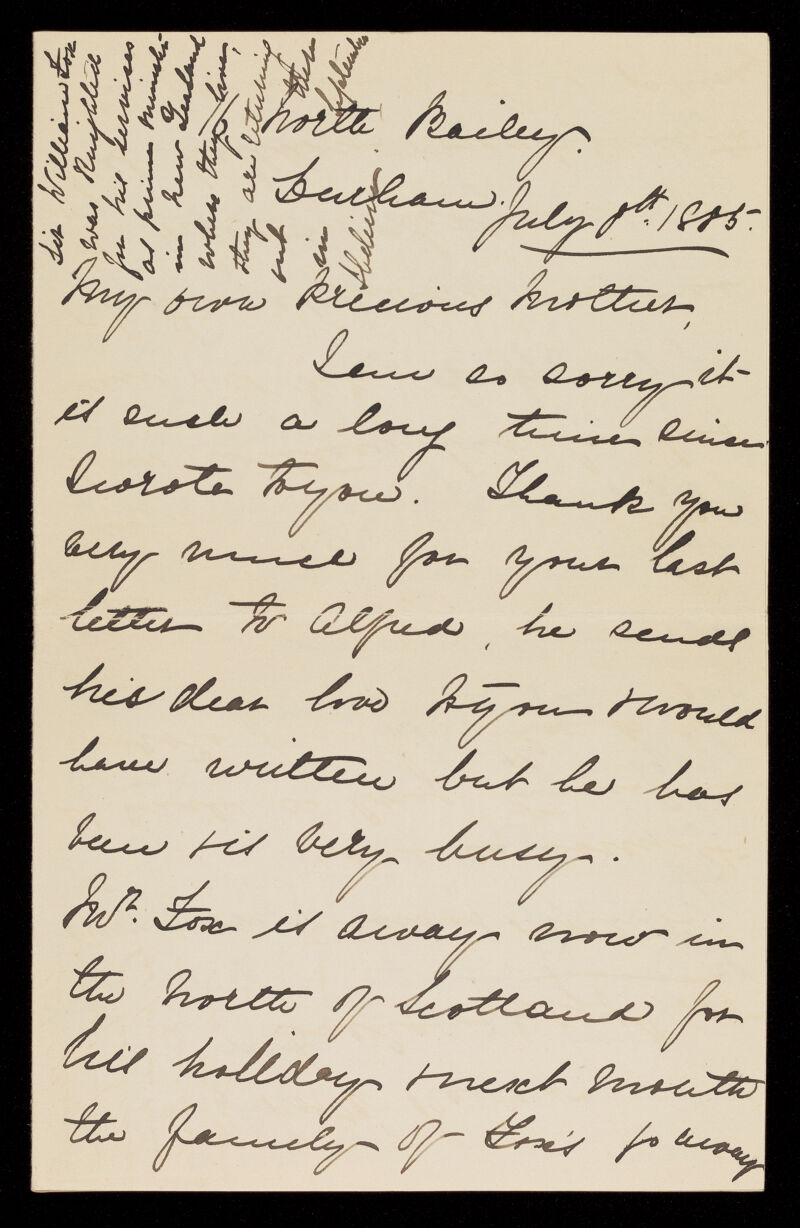 11 North Bailey.
Durham. July 8th. 1885.
My own Precious Mother,
I am so sorry it
is such a long time since
I wrote to you. Thank you
very much for your last
letter to Alfred, he sends
his dear love to you & would
have written but he has
been & is very busy.
Mr. Fox is away now in
the North of Scotland for
his holiday & next month
the family of Fox's go away
Sir William Fox
was Knighted
for his services
as prime Minister
in New Zealand
where they live,
they are returning
out there
in September